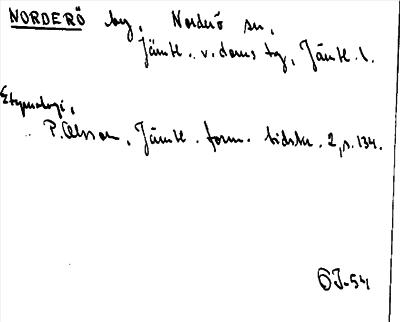 NORDERÖ by, Norderö sn,
Jämtl. v. doms tg, Jämtl. l.
Etymologi,
P. Olsson, Jämtl. forn. tidskr. 2, s. 134.
ÖJ-54